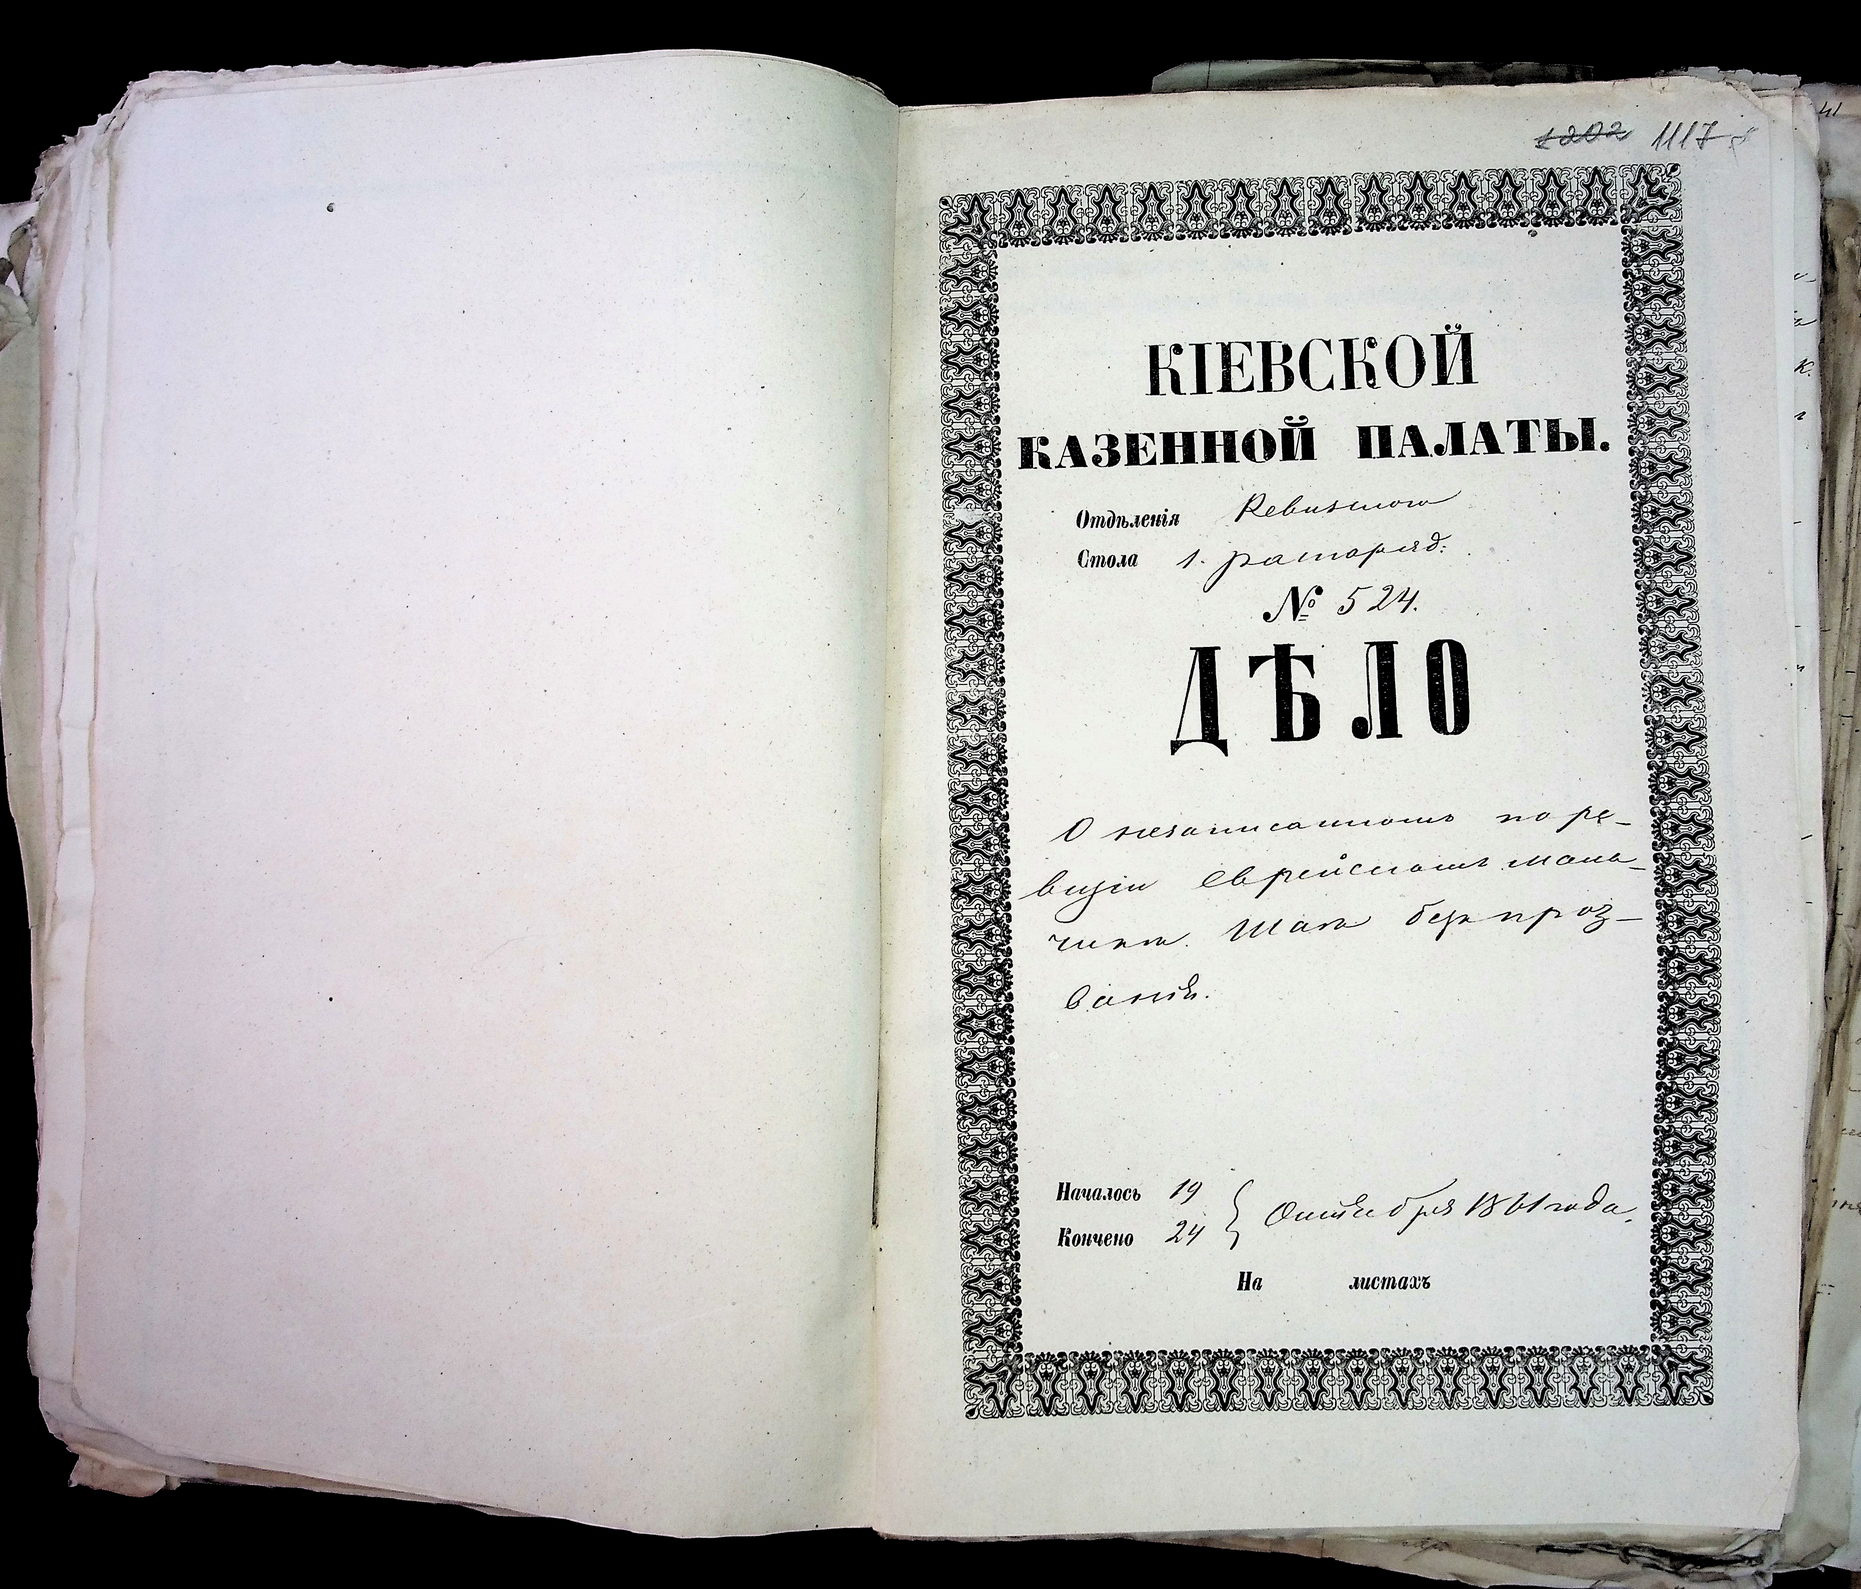 1202 1117
КІЕВСКОЙ
КАЗЕННОЙ ПАЛАТЫ.
Отдѣленія Ревизскаго
Стола 1. распоряд:
№ 524.
ДѢЛО
О незаписанномъ по ре-
визіи еврейскомъ маль-
чикѣ безъ проз-
ванія.
Началось 19
Кончено 24 } Октября 1861 года.
На листахъ